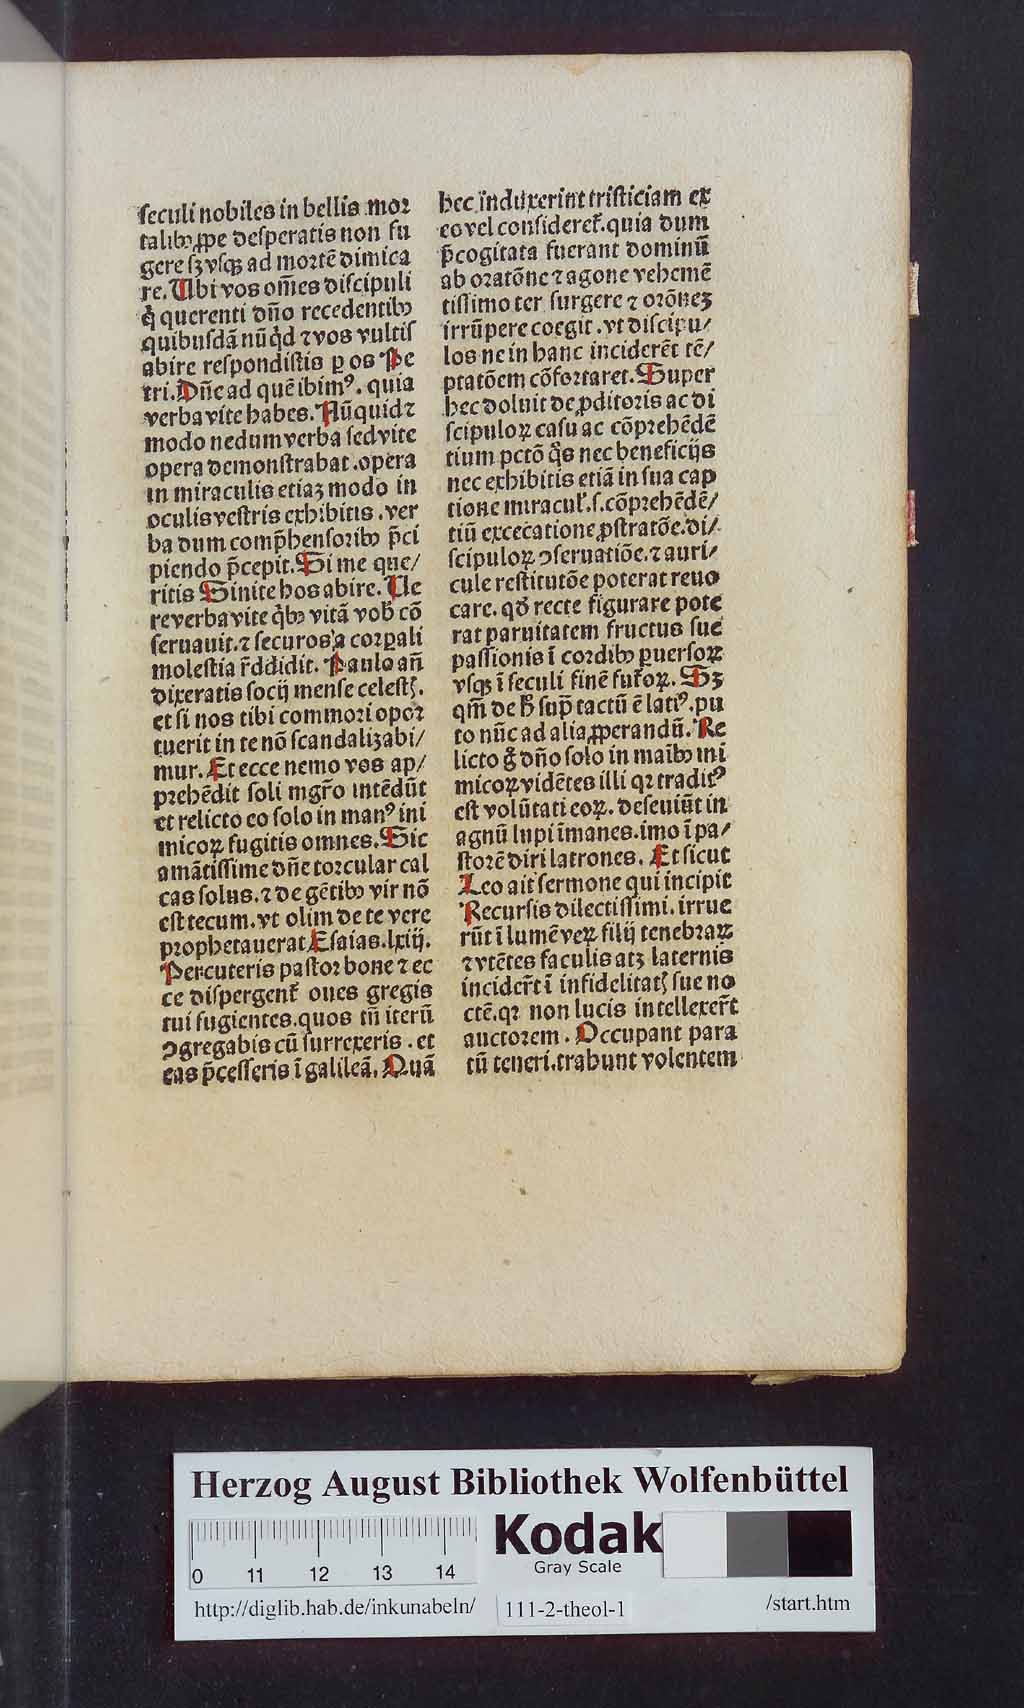 ſeculi nobiles in bellis mor
talibꝰ ꝓpe deſperatis non fu
gere sꝫ vſqꝫ ad mortē dimica
re. Ubi vos om̄es diſcipuli
q̇ querenti dn̄o recedentibꝰ
quibuſdā nūq̇d ⁊ vos vultiſ
abire reſpondiſtis ꝑ os Pe
tri. Dn̄e ad quē ibimꝰ. quia
verba vite habes. Nūquid ⁊
modo nedum verba ſed vite
opera demonſtrabat .opera
in miraculis etiaꝫ modo in
oculis veſtris exhibitis .ver
ba dum comp̄henſoribꝰ p̄ci
piendo p̄cepit. Si me que/
ritis Sinite hos abire. Ue
re verba vite q̇bꝰ vitā vob̄ cō
ſeruauit.⁊ ſecuros a corꝑali
moleſtia r̄ddidit. Paulo an̄
dixeratis ſocij menſe celeſtꝭ.
et ſi nos tibi commori opor
tuerit in te nō ſcandalizabi/
mur. Et ecce nemo vos ap/
prehēdit ſoli mgr̄o intēdūt
et relicto eo ſolo in manꝰ ini
micoꝝ fugitis omnes. Sic
amātiſſime dn̄e torcular cal
cas ſolus.⁊ de gētibꝰ vir nō
eſt tecum. vt olim de te vere
prophetauerat Eſaias.lxiij.
Percuteris paſtor bone ⁊ ec
ce diſpergent᷑ oues gregis
tui fugientes.quos tn̄ iterū
ↄgregabis cū ſurrexeris . et
eas p̄ceſſeris ī galileā. Quā
hec induxerint triſticiam ex
eo vel conſideret᷑.quia dum
p̄cogitata fuerant dominū
ab oratōne ⁊ agone vehemē
tiſſimo ter ſurgere ⁊ orōneꝫ
irrūpere coegit .vt diſcipu/
los ne in hanc inciderēt tē/
ptatōem cōfortaret. Super
hec doluit de ꝓditoris ac di
ſcipuloꝝ caſu ac cōprehēdē
tium pctō q̊s nec beneficijs
nec exhibitis etiā in ſua cap
tione miracul᷑.ſ.cōprehēdē/
tiū excecatione ꝓſtratōe.di/
ſcipuloꝝ ↄſeruatiōe.⁊ auri/
cule reſtitutōe poterat reuo
care. qd̄ recte figurare pote
rat paruitatem fructus ſue
paſſionis ī cordibꝰ ꝑuerſoꝝ
vſqꝫ ī ſeculi finē fut᷑oꝝ. Sꝫ
qm̄ de h̄ ſup̄ tactū ē latiꝰ.pu
to nūc ad alia ꝓperandū. Re
licto g̊ dn̄o ſolo in maibꝰ ini
micoꝝ vidētes illi qꝛ traditꝰ
eſt volūtati eoꝝ. deſeuiūt in
agnū lupi īmanes.imo ī pa/
ſtorē diri latrones. Et ſicut
Leo ait ſermone qui incipit
Recurſis dilectiſſimi. irrue
rūt ī lumē veꝝ filij tenebraꝝ
⁊ vtētes faculis atqꝫ laternis
incider̄t ī infidelitatꝭ ſue no
ctē.qꝛ non lucis intellexer̄t
auctorem . Occupant para
tū teneri.trahunt volentem
Herzog August Bibliothek Wolfenbüttel
0 11 12 13 14
Kodak
Gray Scale
http://diglib.hab.de/inkunabeln/ 111-2-theol-1 /start.htm